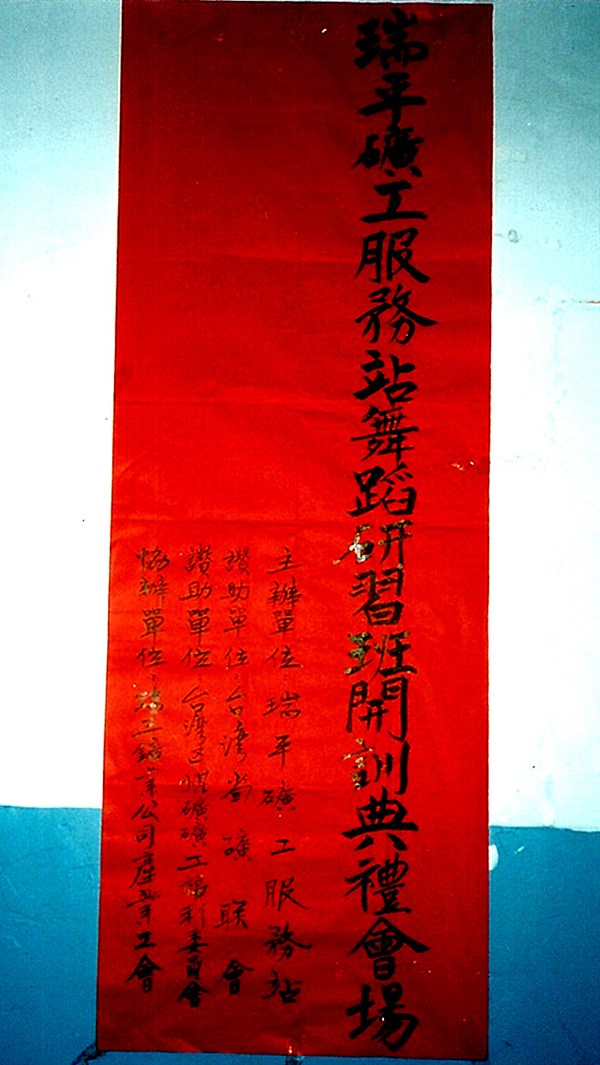 瑞平礦工服務站舞蹈研習班開訓典禮會場
主辦單位:瑞平礦工服務站
讚助單位:台湾省礦联會
讚助單位:台湾区煤礦礦工福利委員會
協辦單位:瑞三鑛業公司產業工會